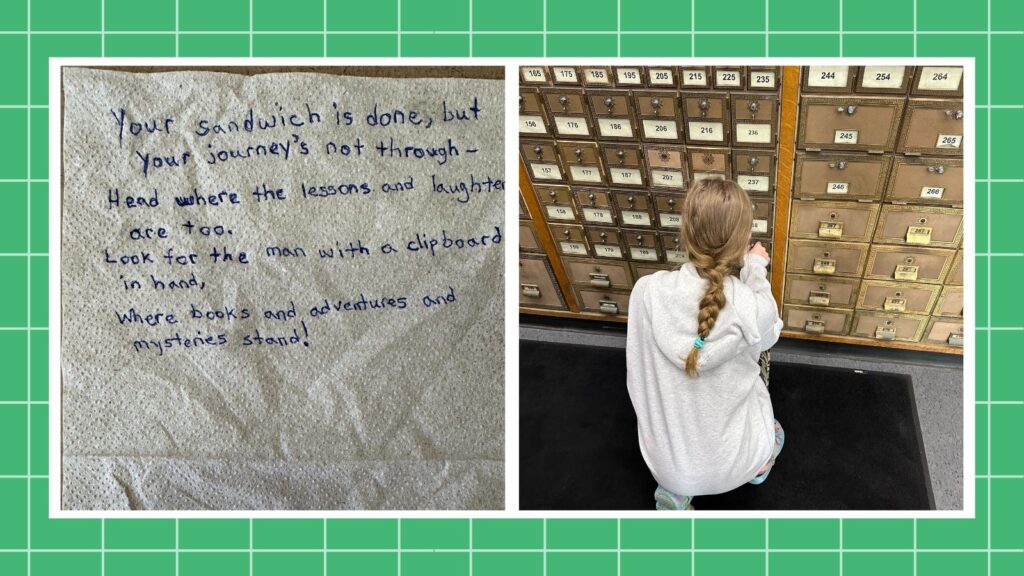 Your sandwich is done, but
your journey's not through –
Head where the lessons and laughter
are too.
Look for the man with a clipboard
in hand,
where books and adventures and
mysteries stand!
165 175 185 195 205 215 225 235
156 176 186 206 216 236
157 177 187 207 237
158 178 188 208
179
244 254 264
245 265
246 266
267